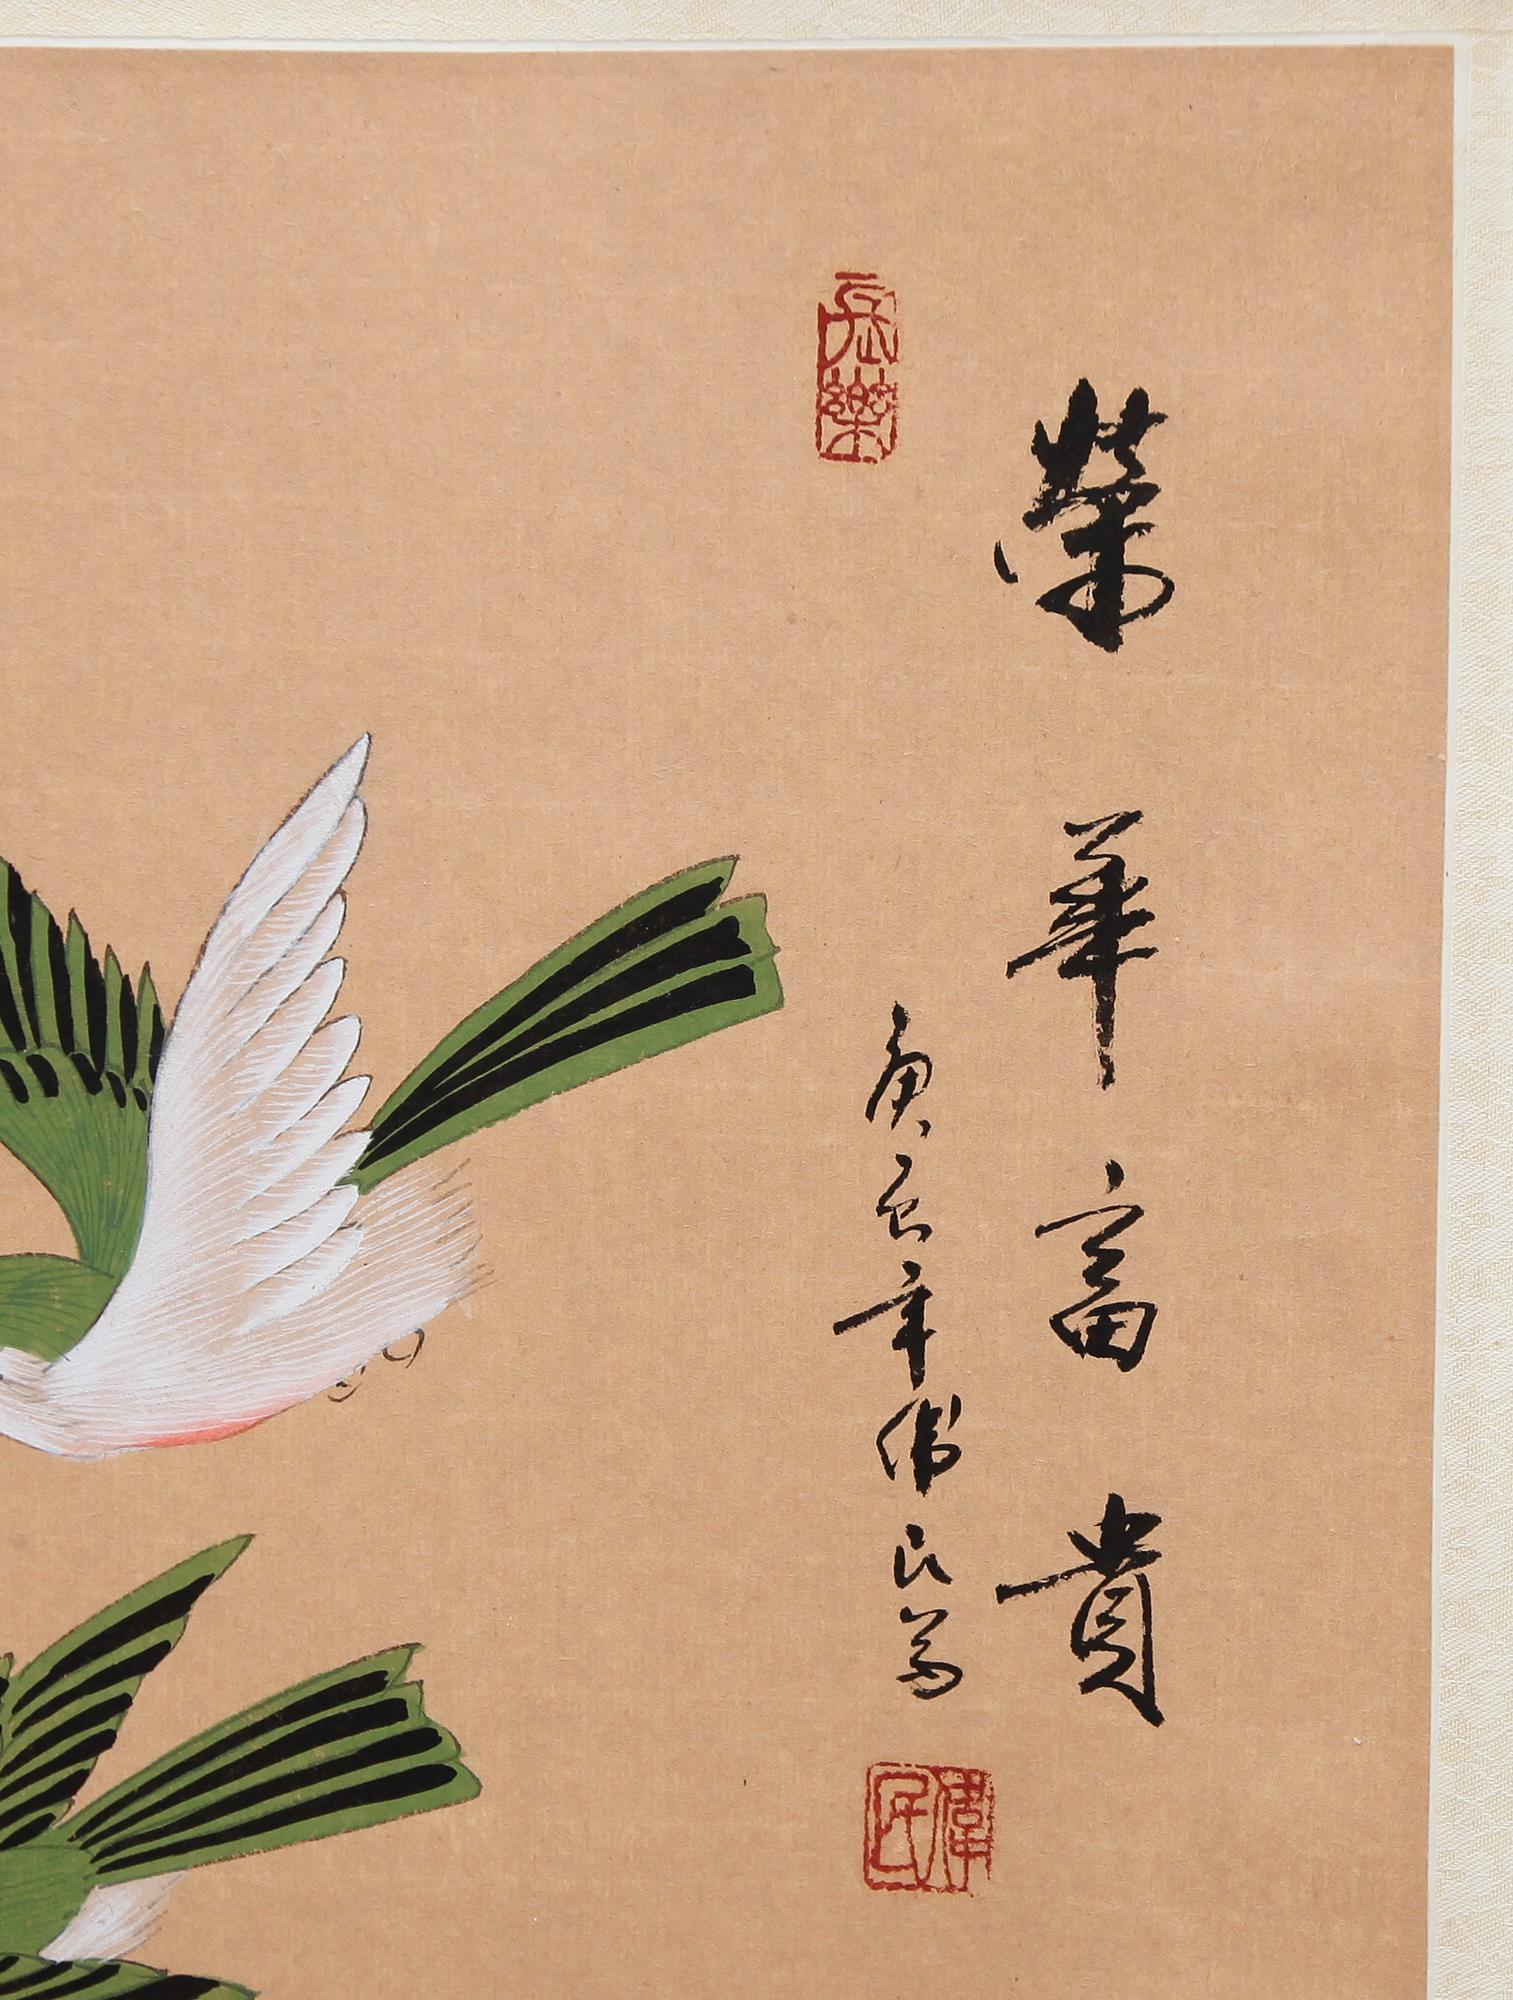 榮華富貴
庚辰年偉民寫
長樂
偉民